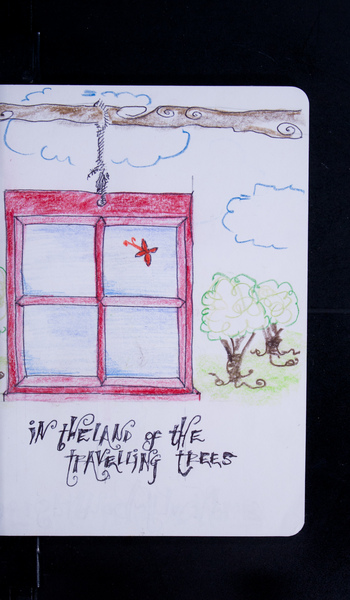 in the land of the
travelling trees